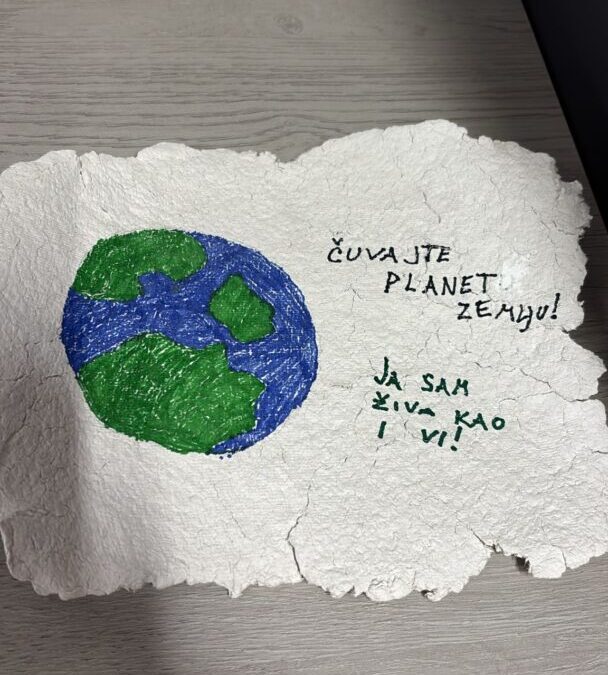 ČUVAJTE
PLANETU
ZEMLJU!
JA SAM
ŽIVA KAO
I VI!